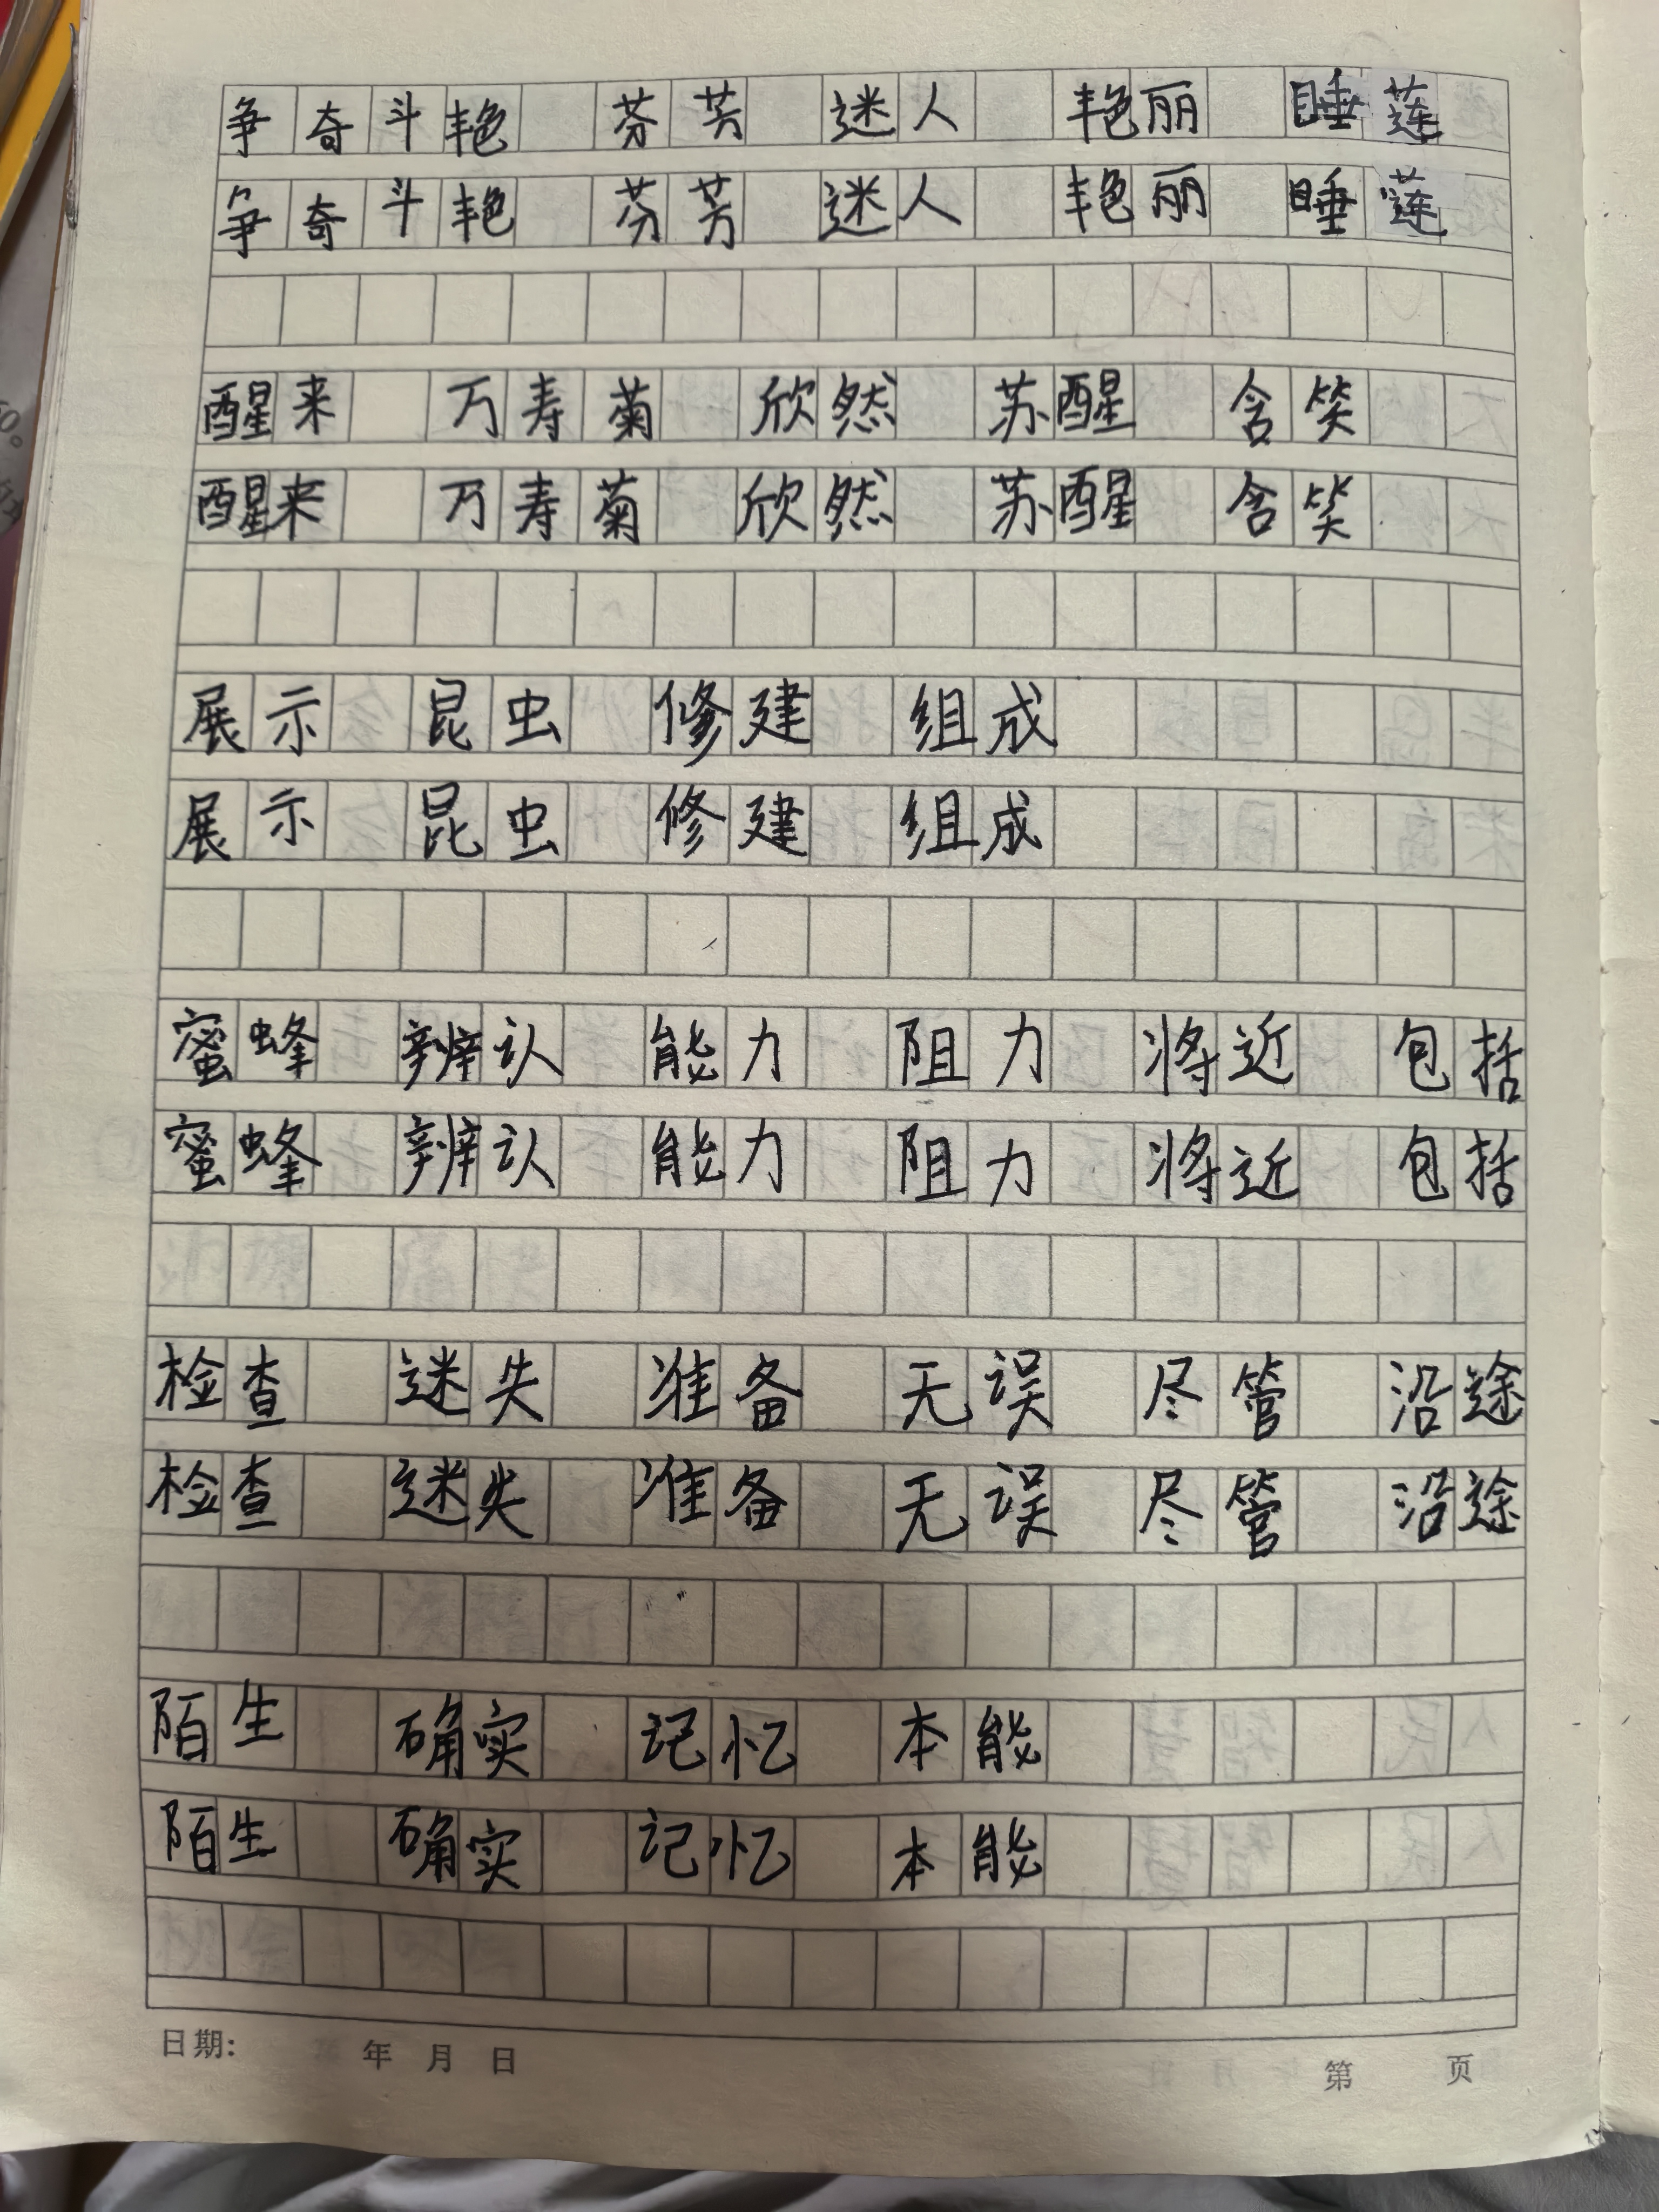 争奇斗艳 芬芳 迷人 艳丽 睡莲
争奇斗艳 芬芳 迷人 艳丽 睡莲
醒来 万寿菊 欣然 苏醒 含笑
醒来 万寿菊 欣然 苏醒 含笑
展示 昆虫 修建 组成
展示 昆虫 修建 组成
蜜蜂 辨认 能力 阻力 将近 包括
蜜蜂 辨认 能力 阻力 将近 包括
检查 迷失 准备 无误 尽管 沿途
检查 迷失 准备 无误 尽管 沿途
陌生 确实 记忆 本能
陌生 确实 记忆 本能
日期: 年 月 日 第 页